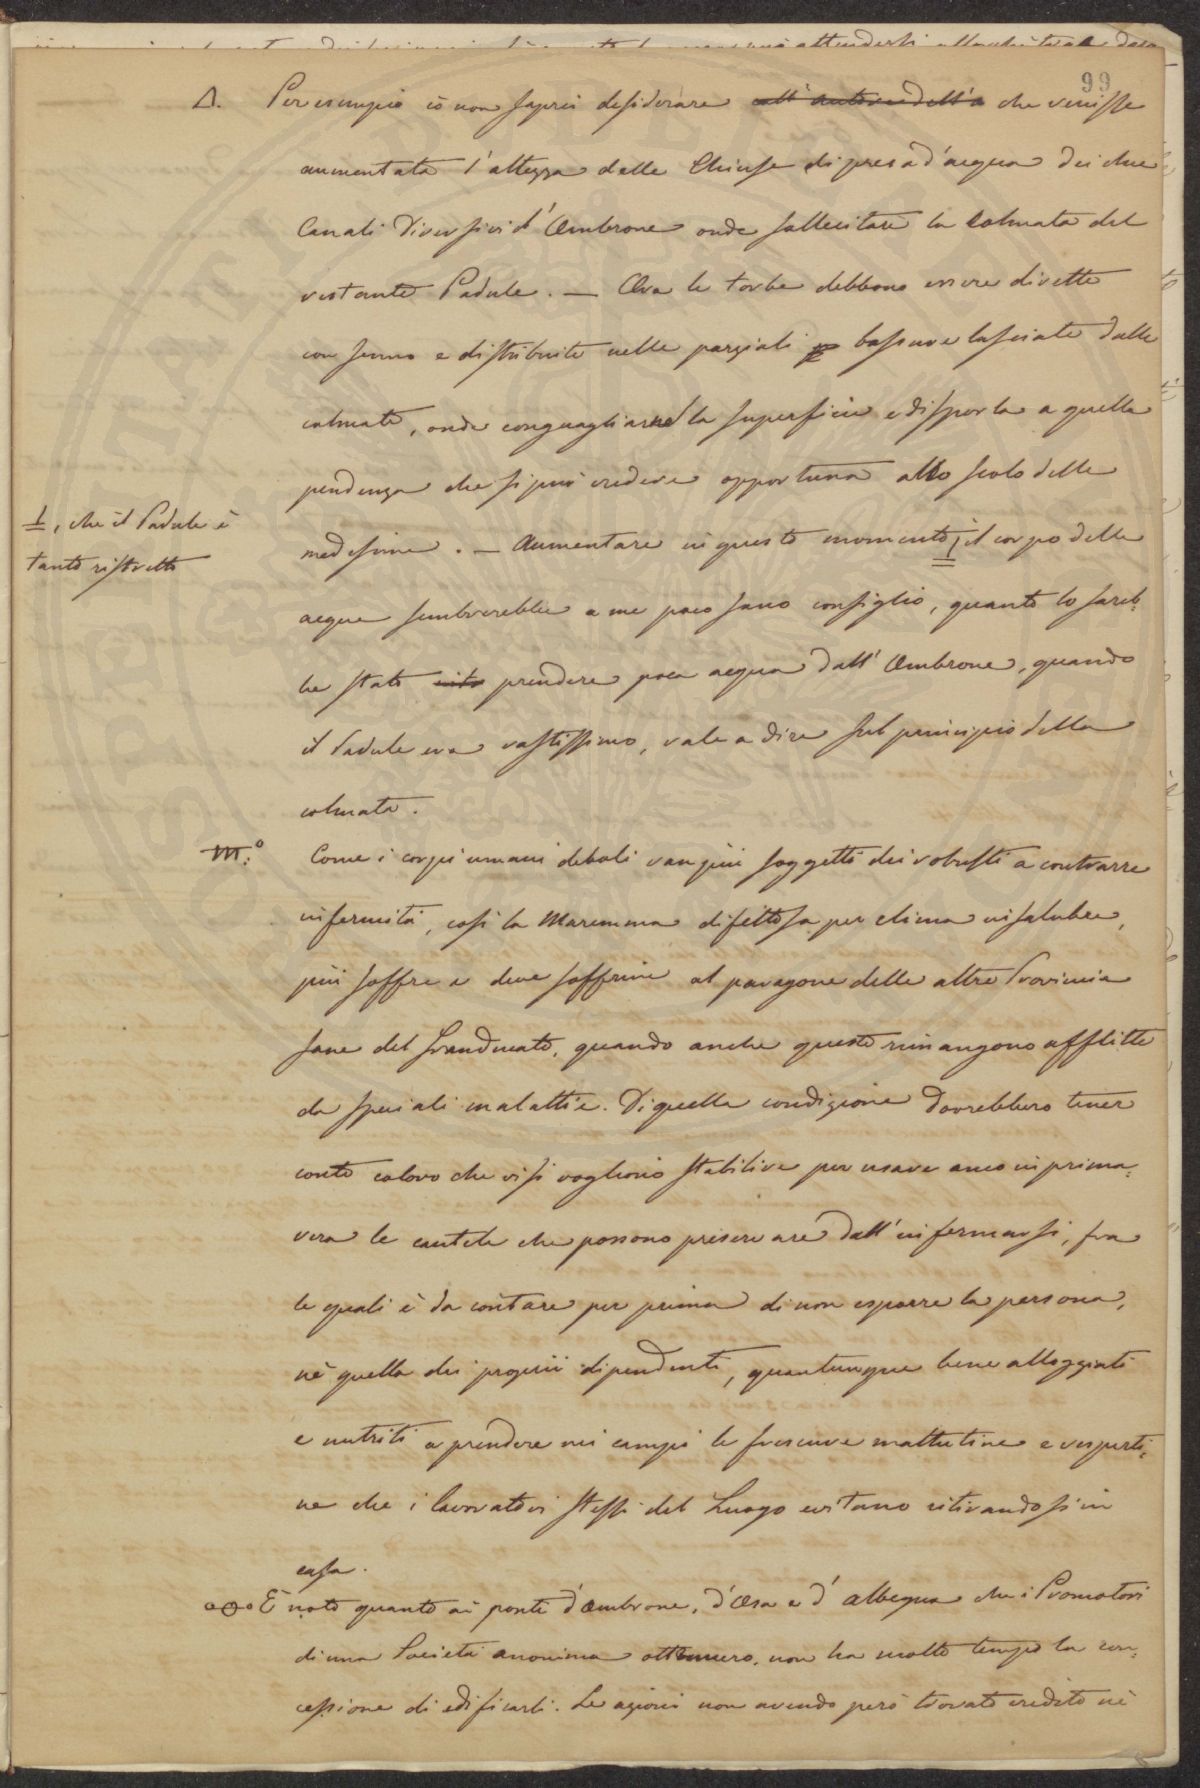 99
Δ. Per esempio io non saprei desiderare all'autore dell'a che venisse
aumentata l'altezza delle Chiuse di presa d'acqua dei due
Canali Diversivi d'Ombrone onde sollecitare la Colmata del
restante Padule. — Ora le torbe debbono essere dirette
con senno e distribuite nelle parziali bassure lasciate dalle
colmate, onde conguagliarne la superficie e disporla a quella
pendenza che si può credere opportuna allo scolo delle
1, che il Padule è
tanto ristretto
medesime. — Aumentare in questo momento 1 il corpo delle
acque sembrerebbe a me poco sano consiglio, quanto lo sareb:
be stato prendere poca acqua dall'Ombrone, quando
il Padule era vastissimo, vale a dire sul principio della
colmata.
M:° Come i corpi umani deboli van più soggetti dei robusti a contrarre
infermità, così la Maremma difettosa per clima insalubre,
più soffre e deve soffrire al paragone delle altre Provincie
sane del Granducato, quando anche queste rimangono afflitte
da speciali malattie. Di quella condizione dovrebbero tener
conto coloro che vi si vogliono stabilire per usare anco in prima:
vera le cautele che possono preservare dall'infermarsi, fra
le quali è da contare per prima di non esporre la persona,
nè quella dei proprii dipendenti, quantunque bene alloggiati
e nutriti a prendere nei campi le frescure mattutine e vesperti:
ne che i lavoratori stessi del Luogo evitano ritirandosi in
casa.
È noto quanto ai ponti d'Ombrone, d'Osa e d'Albegna che i Promotori
di una Società anonima ottennero, non ha molto tempo la con:
cessione di edificarli. Le azioni non avendo però trovato credito nè